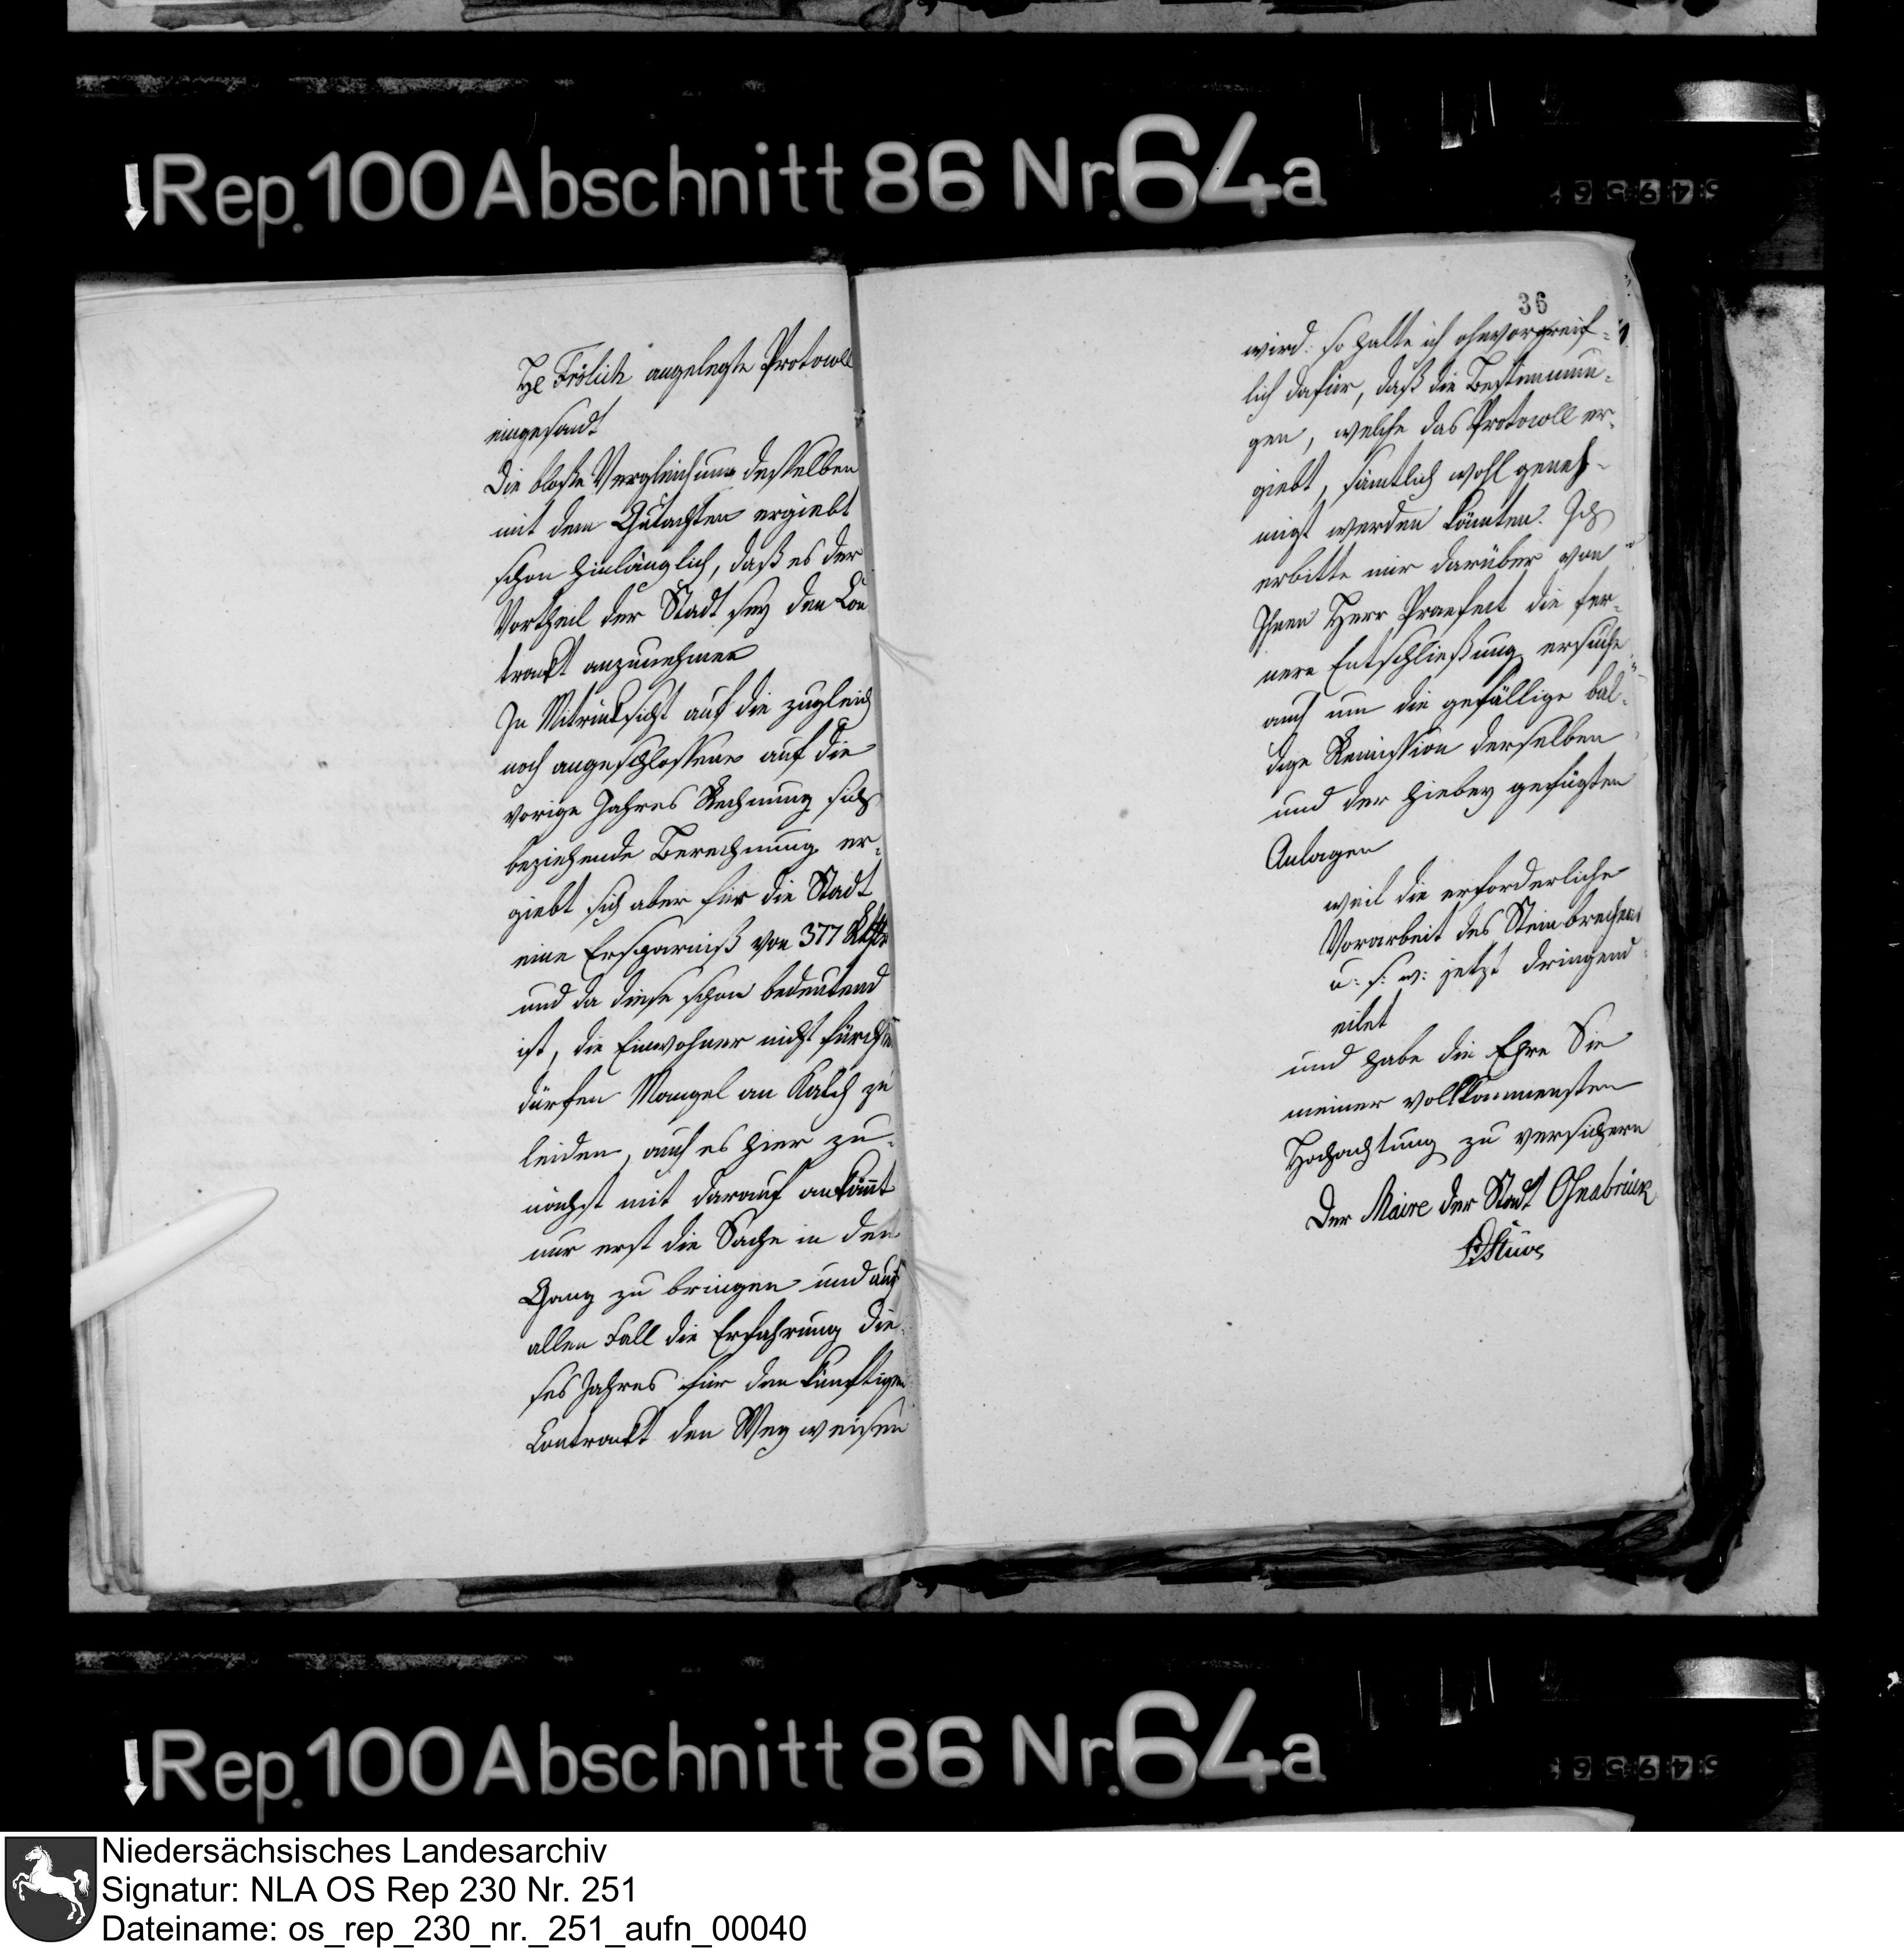 Rep. 100 Abschnitt 86 Nr. 64a
Hl Frölich angelegte Protocoll
eingesandt
Die bloße Vergleichung desselben
mit dem Gutachten ergiebt
schon hinlänglich, daß es der
Vortheil der Stadt sey den Con
trackt anzunehmen
In Mitrücksicht auf die zugleich
noch angeschlossene auf die
vorige Jahres Rechnung sich
beziehende Berechnung er-
giebt sich aber für die Stadt
eine Ersparniß von 377 Rthlr
und da diese schon bedeutend
ist, die Einwohner nicht fürchten
dürfen Mangel an Kalch zu
leiden, auch es hier zu-
nächst mit darauf ankömt
nur erst die Sache in den
Gang zu bringen und auf
allen Fall die Erfahrung die-
ses Jahres für den künftigen
Contrackt den Weg weisen
36
wird: so halte ich ohnvorgreif-
lich dafür, daß die Bestimmun-
gen, welche das Protocoll er-
giebt, sämtlich wohl geneh-
migt werden könnten. Ich
erbitte mir darüber von
Ihnen Herr Praefect die fer-
nere Entschließung ersuche
auch um die gefällige bal-
dige Remission derselben
und der hiebey gefügten
Anlagen
weil die erforderliche
Vorarbeit des Steinbrechens
u. s. w. jetzt dringend
eilet
und habe die Ehre Sie
meiner vollkommensten
Hochachtung zu versichern
Der Maire der Stadt Osnabrück
Stüve
Rep. 100 Abschnitt 86 Nr. 64a
Niedersächsisches Landesarchiv
Signatur: NLA OS Rep 230 Nr. 251
Dateiname: os_rep_230_nr._251_aufn_00040